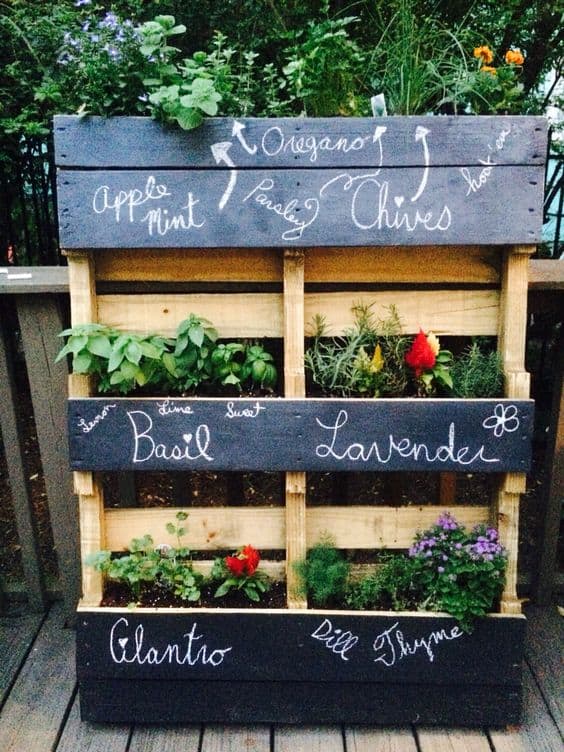 Oregano
Apple Mint
Parsley
Chives
hook'em
Lemon Lime Sweet
Basil
Lavender
Cilantro
Dill
Thyme